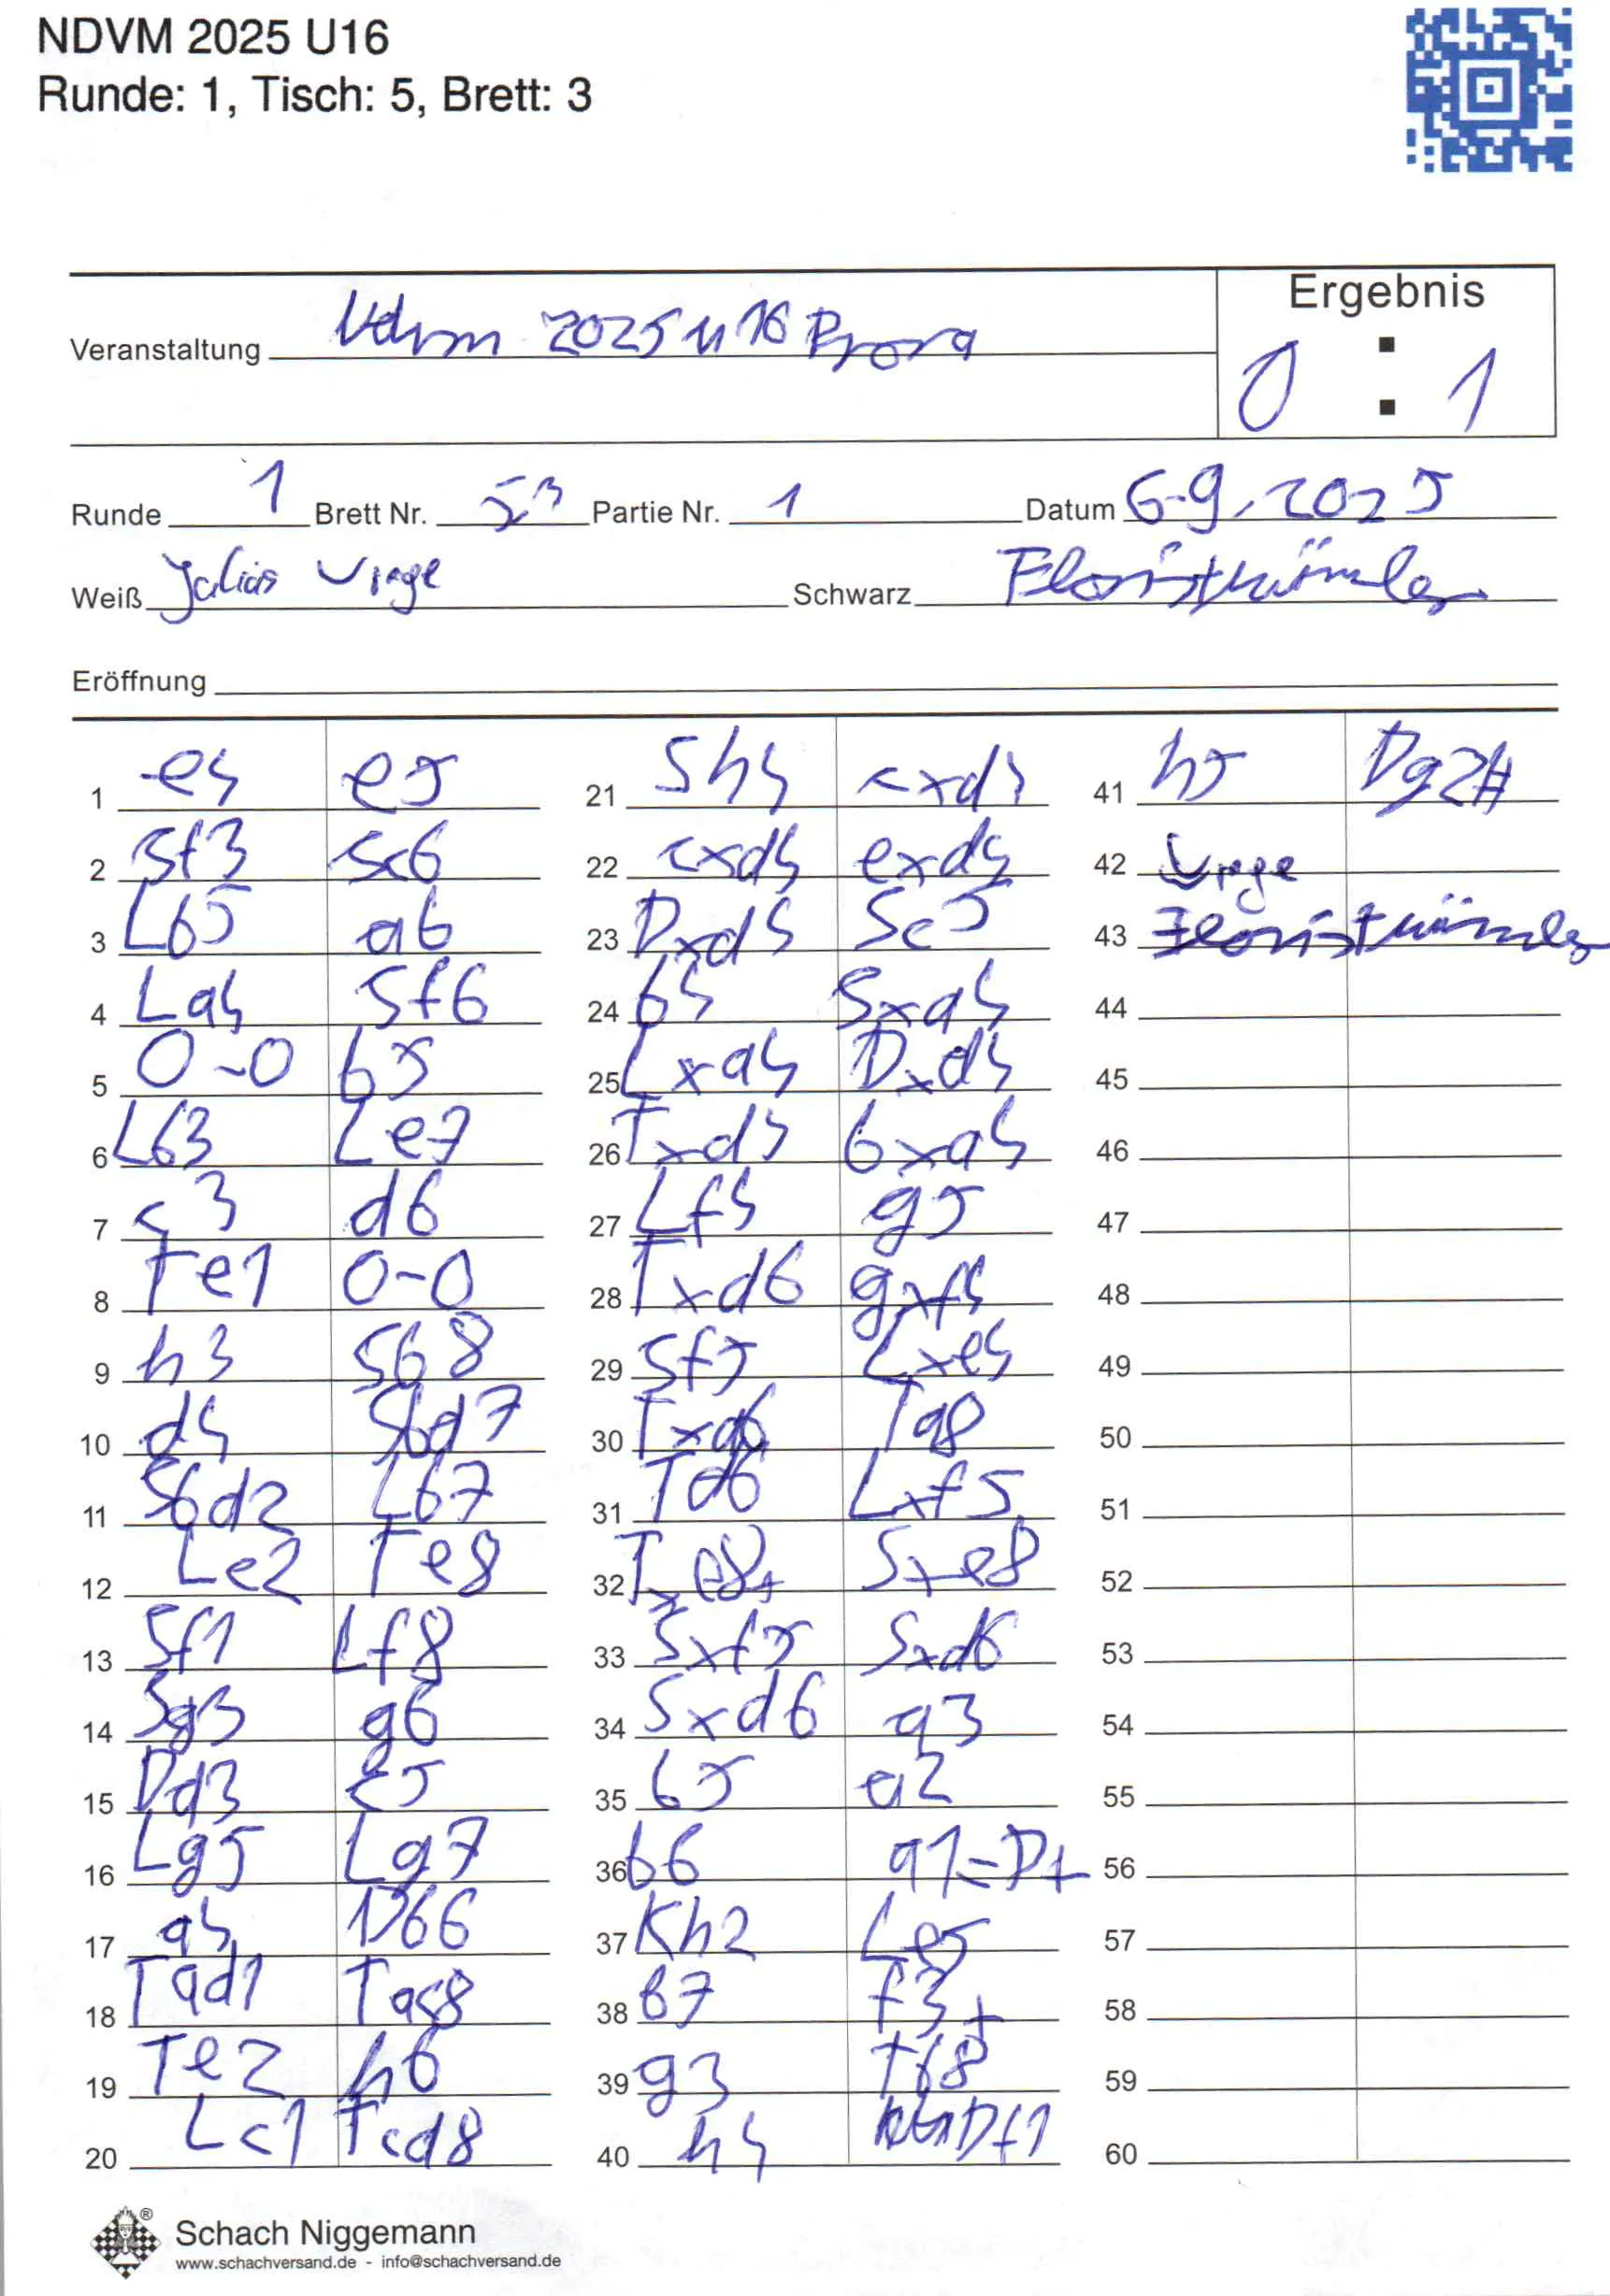 NDVM 2025 U16
Runde: 1, Tisch: 5, Brett: 3
Ergebnis
Veranstaltung Ndvm 2025 U16 Prora
0 : 1
Runde 1 Brett Nr. 5 3 Partie Nr. 1 Datum 6.9.2025
Weiß Julius Schwarz
Eröffnung
1 e4 e5
2 Sf3 Sc6
3 Lb5 a6
4 La4 Sf6
5 0-0 b5
6 Lb3 Le7
7 c3 d6
8 Te1 0-0
9 h3 Sb8
10 d4 Sbd7
11 Sbd2 Lb7
12 Lc2 Te8
13 Sf1 Lf8
14 Sg3 g6
15 Dd3 c5
16 Lg5 Lg7
17 a4 Db6
18 Tad1 Tac8
19 Te2 h6
20 Lc1 Tcd8
21 Sh4 cxd4
22 cxd4 exd4
23 Dxd4 Sc5
24 b4 Sxa4
25 Lxa4 Dxd4
26 Txd4 bxa4
27 Lf4 g5
28 Txd6 gxf4
29 Sf5 Lxe4
30 Txa6 Ta8
31 Td6 Lxf5
32 Txe8+ Sxe8
33 Sxf5 Sxd6
34 Sxd6 a3
35 b5 a2
36 b6 a1=D+
37 Kh2 Le5
38 b7 f3+
39 g3 Tb8
40 h4 Df1
41 h5 Dg2#
42
43
44
45
46
47
48
49
50
51
52
53
54
55
56
57
58
59
60
®
Schach Niggemann
www.schachversand.de - info@schachversand.de